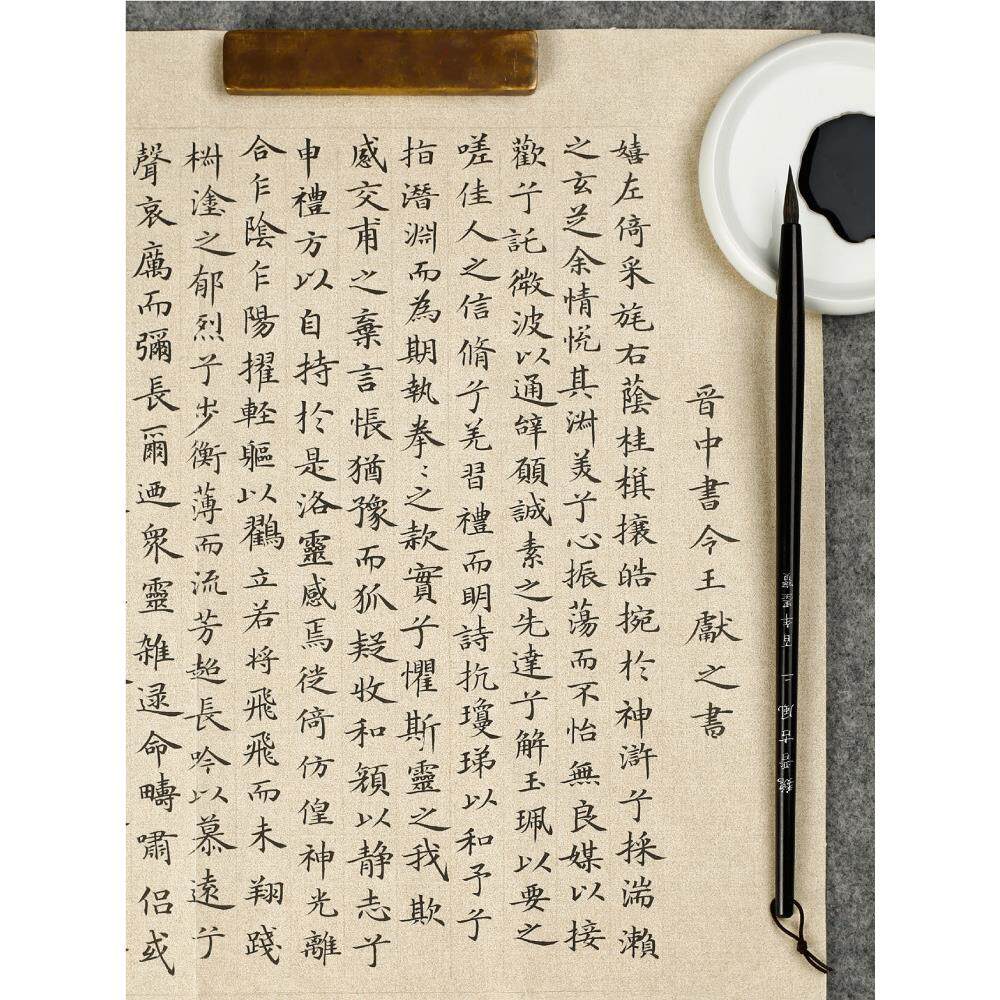 晋中書令王獻之書
嬉左倚采旄右蔭桂棋攘皓捥於神滸兮採湍瀨
之玄芝余情悅其淑美兮心振蕩而不怡無良媒以接
歡兮託微波以通辞願誠素之先達兮解玉珮以要之
嗟佳人之信脩兮羌習禮而明詩抗瓊珶以和予兮
指潛淵而為期執拳〻之款實兮懼斯靈之我欺
感交甫之棄言悵猶豫而狐疑收和顏以静志兮
申禮方以自持於是洛靈感焉徙倚仿偟神光離
合乍陰乍陽擢軽軀以鸖立若将飛飛而未翔踐
椒塗之郁烈兮步衡薄而流芳超長吟以慕遠兮
聲哀厲而彌長爾迺眾靈雜遝命疇嘯侶或
魏晋古風 二 百年墨